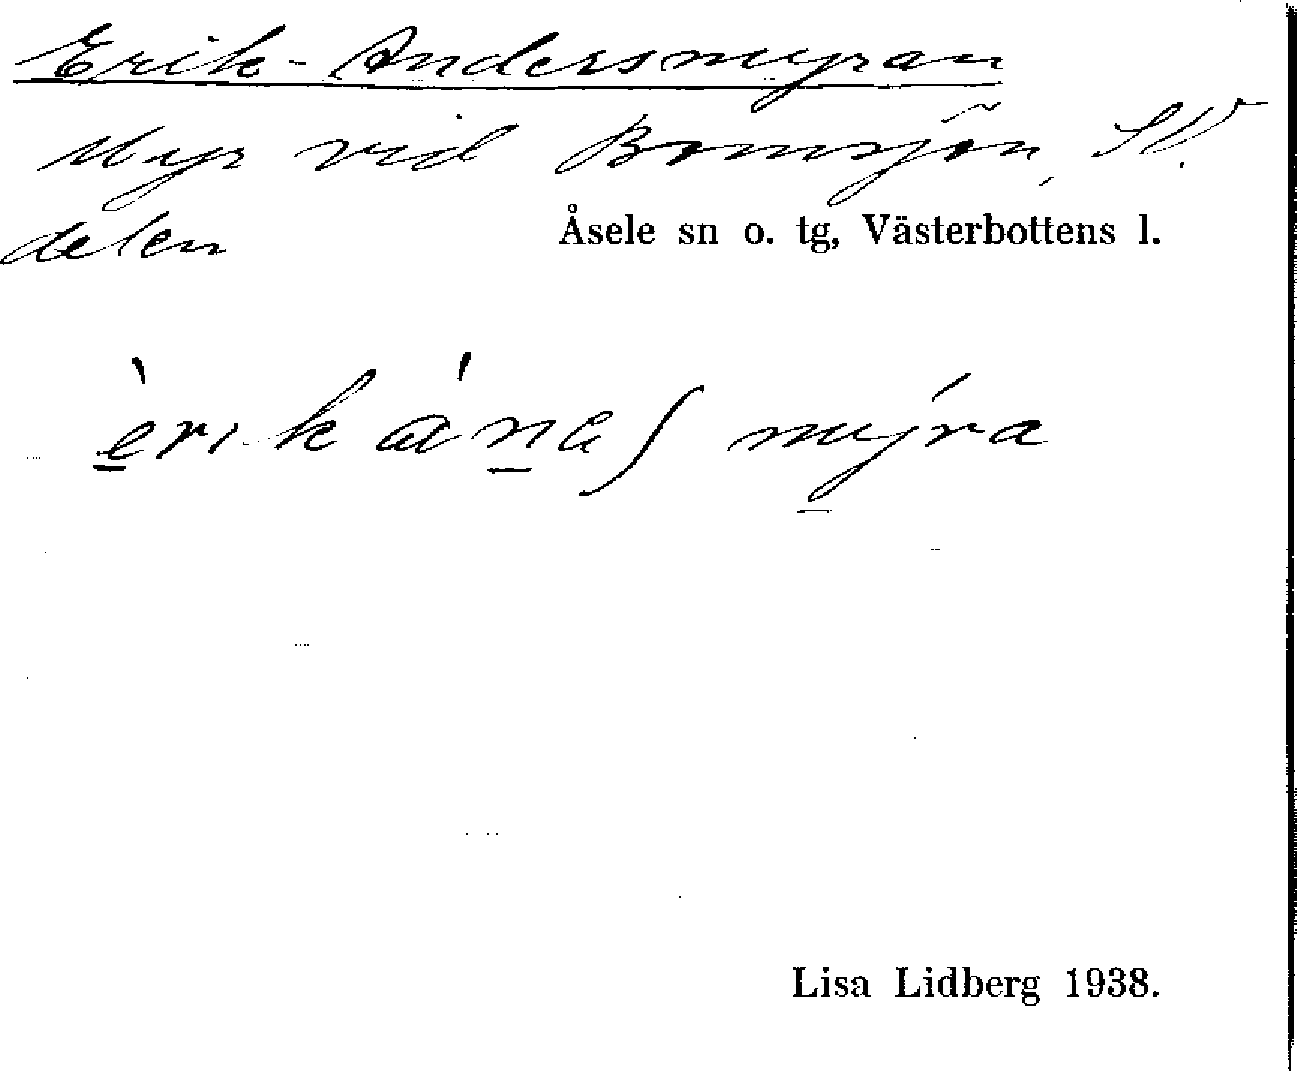 Erik-Andersmyran
Myr vid Bomsjön, SV.
delen
Åsele sn o. tg, Västerbottens l.
èrik ánaʃ mýra
Lisa Lidberg 1938.